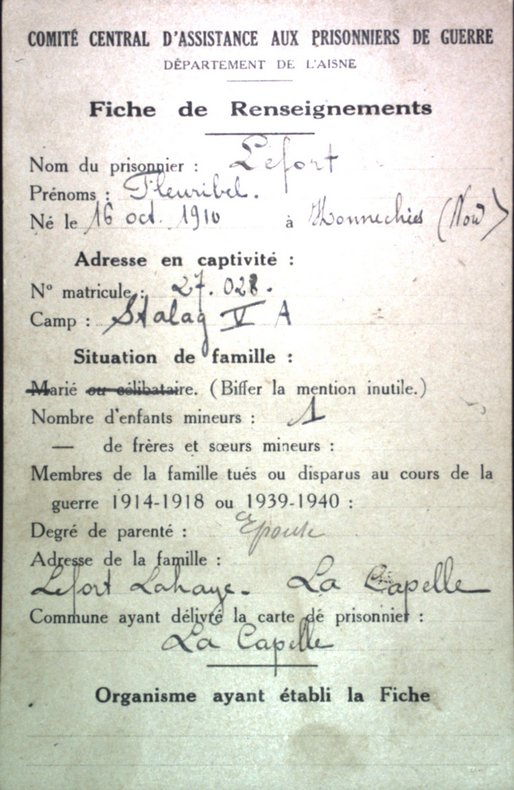 COMITÉ CENTRAL D'ASSISTANCE AUX PRISONNIERS DE GUERRE
DÉPARTEMENT DE L'AISNE
Fiche de Renseignements
Nom du prisonnier : Lefort
Prénoms : Fleuribel.
Né le 16 oct. 1910 à Monnechies (Nord)
Adresse en captivité :
N° matricule : 27.028.
Camp : Stalag V A
Situation de famille :
Marié ou célibataire. (Biffer la mention inutile.)
Nombre d'enfants mineurs : 1
— de frères et sœurs mineurs :
Membres de la famille tués ou disparus au cours de la
guerre 1914-1918 ou 1939-1940 :
Degré de parenté : Epouse
Adresse de la famille :
Lefort Lahaye. La Capelle
Commune ayant délivré la carte de prisonnier :
La Capelle
Organisme ayant établi la Fiche